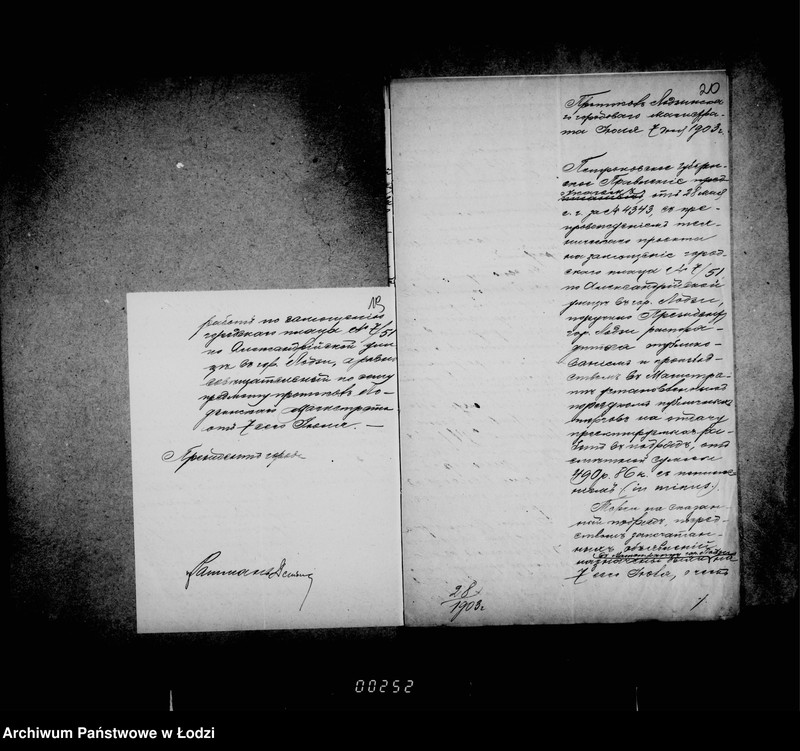 19
работъ по замощенію
городскаго плаца № 7/51
по Александрійской ули-
цѣ въ гор. Лодзи, а равно
совѣщательный по сему
предмету протоколъ Ло-
дзинскаго Магистрата
отъ 7 сего Іюля. —
Президентъ города
20
Протоколъ Лодзинска-
го городоваго магистра-
та Іюля 7 дня 1903 г.
Петроковское Губерн-
ское Правленіе пред-
отъ 28 мая
с. г. за № 4343, съ пре-
провожденіемъ тех-
ническаго проекта
на замощеніе город-
скаго плаца № 7/51
по Александрійской
улицѣ въ гор. Лодзи,
поручило Президенту
гор. Лодзи распоря-
диться опублико-
ваніемъ и производ-
ствомъ въ Магистра-
тѣ установленнымъ
порядкомъ публичныхъ
торговъ на отдачу
проектируемыхъ ра-
ботъ въ подрядъ, отъ
смѣтной суммы
490 р. 86 к. съ пониже-
ніемъ (in minus).
Торги на сказан-
ный подрядъ, посред-
ствомъ запечатан-
ныхъ объявленій
назначены были на
7 сего Іюля, о чемъ
28
1903 г.
00252
Archiwum Państwowe w Łodzi